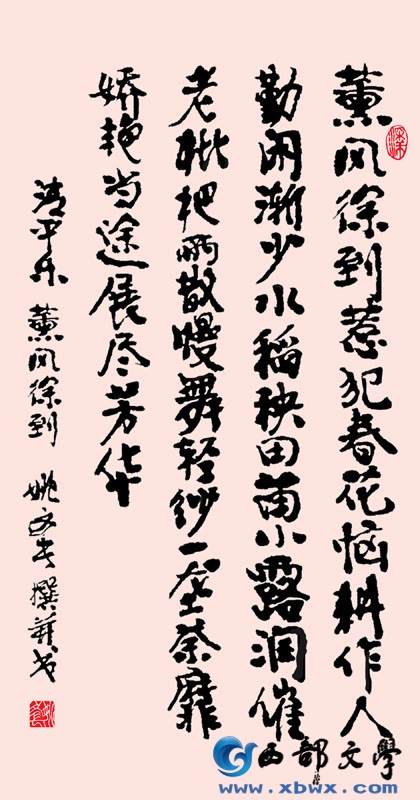 薰风徐到惹犯春花恼耕作人
勤闲渐少水稻秧田苗小露润催
老枇杷雨散慢舞轻纱一垄荼靡
娇艳当途展尽芳华
清平乐 薰风徐到 姚 撰并书
西部文學
www.xbwx.com